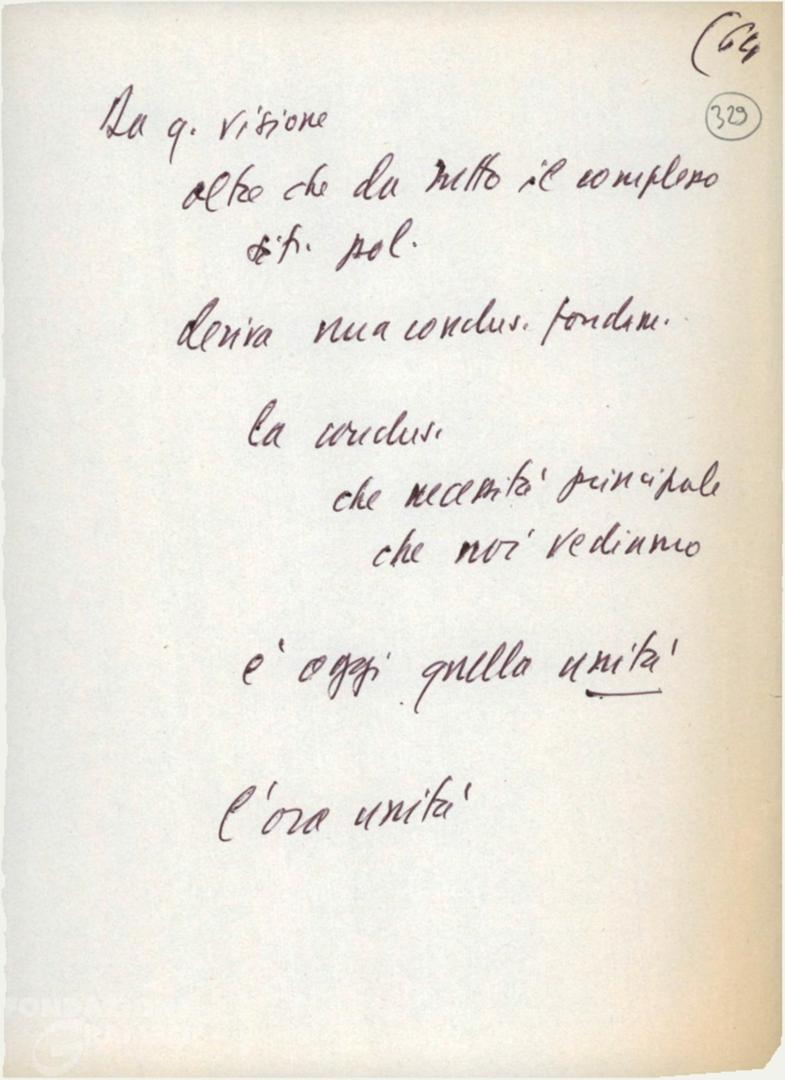 (64
329
Da q. visione
oltre che da tutto il complesso
sit. pol.
deriva una conclus. fondam.
la conclus.
che necessità principale
che noi vediamo
è oggi quella unità
l'ora unità
FONDAZIONE
GRAMSCI